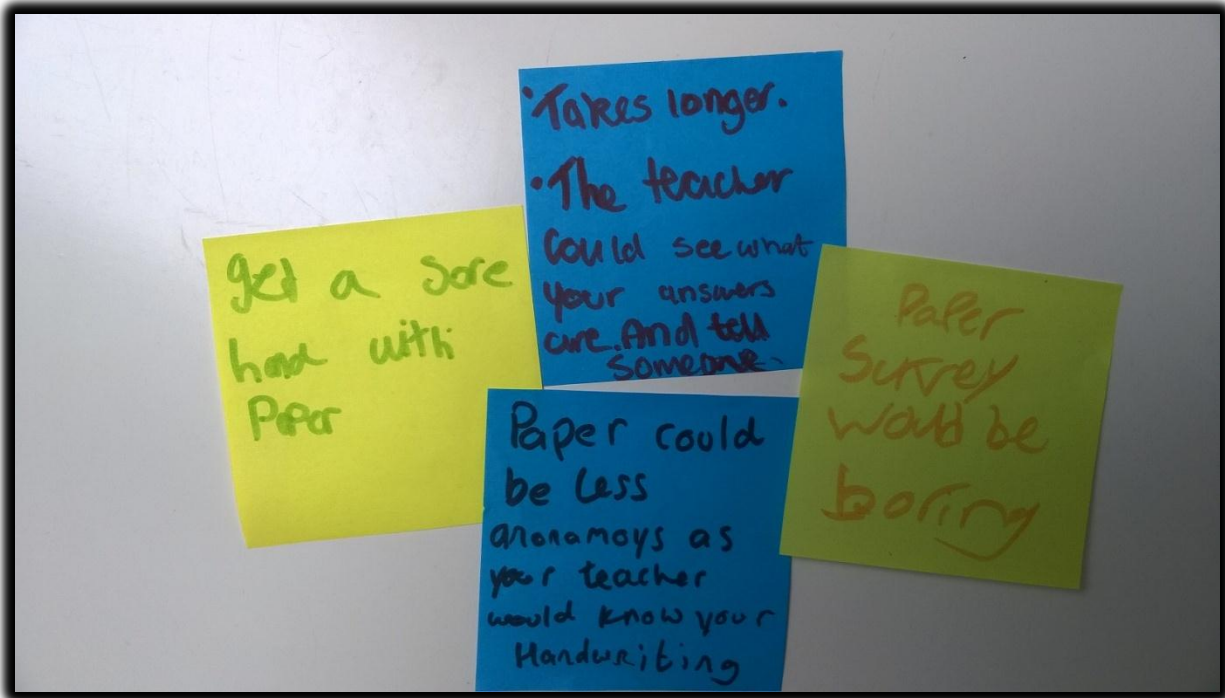 get a sore
hand with
Paper
• Takes longer.
• The teacher
could see what
your answers
are. And tell
someone.
Paper could
be less
anonamoys as
your teacher
would know your
Handwriting
Paper
Survey
would be
boring